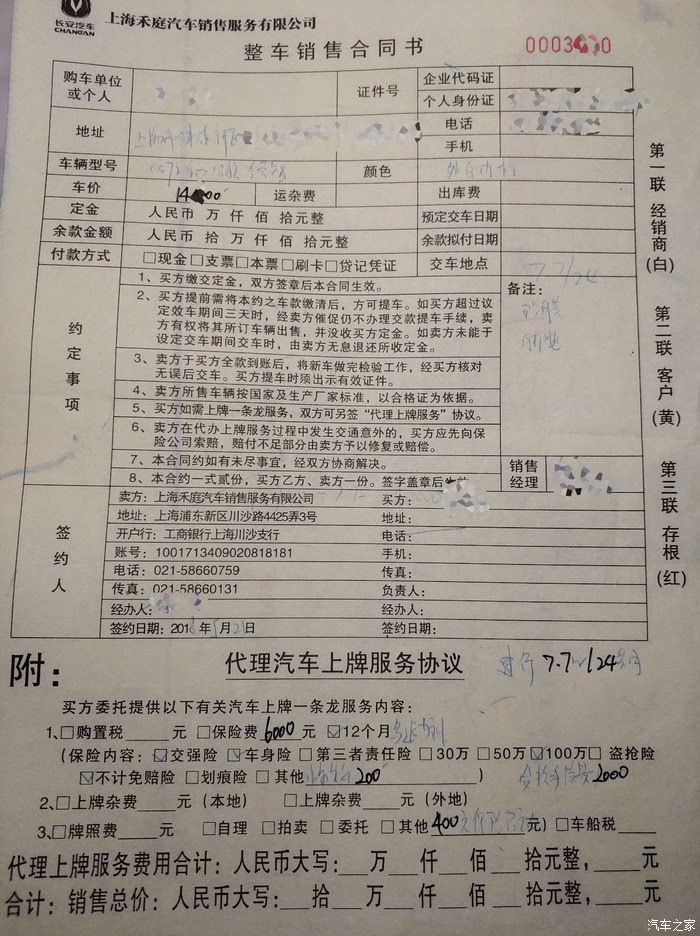 长安汽车
CHANGAN
上海禾庭汽车销售服务有限公司
整车销售合同书
购车单位或个人 证件号 企业代码证
个人身份证
地址 电话
手机
车辆型号 颜色
车价 运杂费 出库费
定金 人民币 万 仟 佰 拾元整 预定交车日期
余款金额 人民币 拾 万 仟 佰 拾元整 余款拟付日期
付款方式 □现金□支票□本票□刷卡□贷记凭证 交车地点
约定事项
1、买方缴交定金,双方签章后本合同生效。
2、买方提前需将本约之车款缴清后,方可提车。如买方超过议
定效车期间三天时,经卖方催促仍不办理交款提车手续,卖
方有权将其所订车辆出售,并没收买方定金。如卖方未能于
设定交车期间交车时,由卖方无息退还所收定金。
3、卖方于买方全款到账后,将新车做完检验工作,经买方核对
无误后交车。买方提车时须出示有效证件。
4、卖方所售车辆按国家及生产厂家标准,以合格证为依据。
5、买方如需上牌一条龙服务,双方可另签“代理上牌服务”协议。
6、卖方在代办上牌服务过程中发生交通意外的,买方应先向保
险公司索赔,赔付不足部分由卖方予以修复或赔偿。
7、本合同约如有未尽事宜,经双方协商解决。
8、本合约一式贰份,买方乙方、卖方一份。签字盖章后
备注:
销售经理
签约人
卖方:上海禾庭汽车销售服务有限公司 买方:
地址:上海浦东新区川沙路4425弄3号 地址:
开户行:工商银行上海川沙支行 电话:
账号:1001713409020818181 手机:
电话:021-58660759 传真:
传真:021-58660131 负责人:
经办人: 经办人:
签约日期:2018年5月21日 签约日期:
第一联 经销商(白)
第二联 客户(黄)
第三联 存根(红)
附:
代理汽车上牌服务协议
7.7 /24
买方委托提供以下有关汽车上牌一条龙服务内容:
1、□购置税____元 □保险费6000元 ☑12个月
(保险内容:☑交强险 ☑车身险 □第三者责任险 □30万 □50万 ☑100万 □ 盗抢险
☑不计免赔险 □划痕险 □其他 200 ) 2000
2、□上牌杂费____元(本地) □上牌杂费____元(外地)
3、□牌照费____元 □自理 □拍卖 □委托 □其他400 元) □车船税____
代理上牌服务费用合计:人民币大写:__万__仟__佰__拾元整,____元
合计:销售总价:人民币大写:__拾__万__仟__佰__拾元整,____元
汽车之家